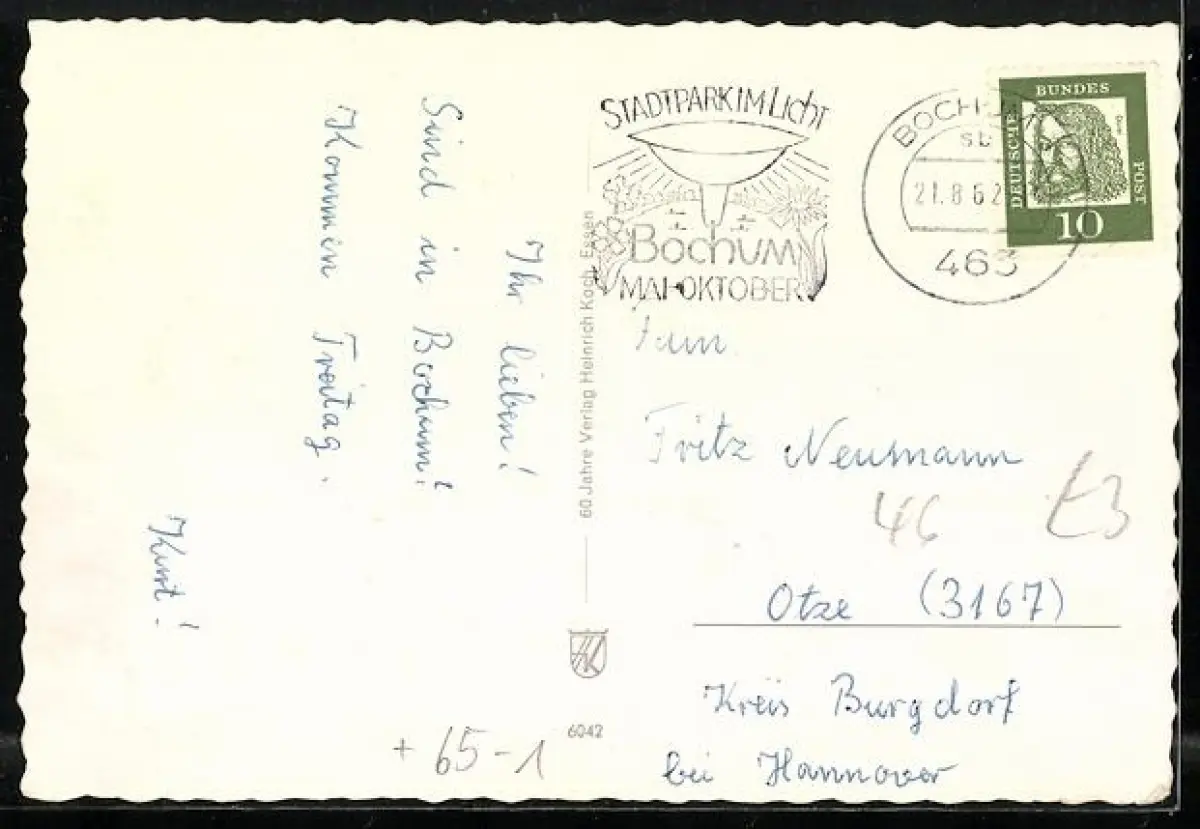 Ihr lieben!
Sind in Bochum!
Kommen Freitag.
Kurt!
60 Jahre Verlag Heinrich Koch, Essen
6042
+ 65-1
STADTPARK IM LICHT
BOCHUM
MAI-OKTOBER
BOCHUM
21.8.62
463
DEUTSCHE
BUNDES
POST
10
Fritz Neumann
46
Otze (3167)
Kreis Burgdorf
bei Hannover